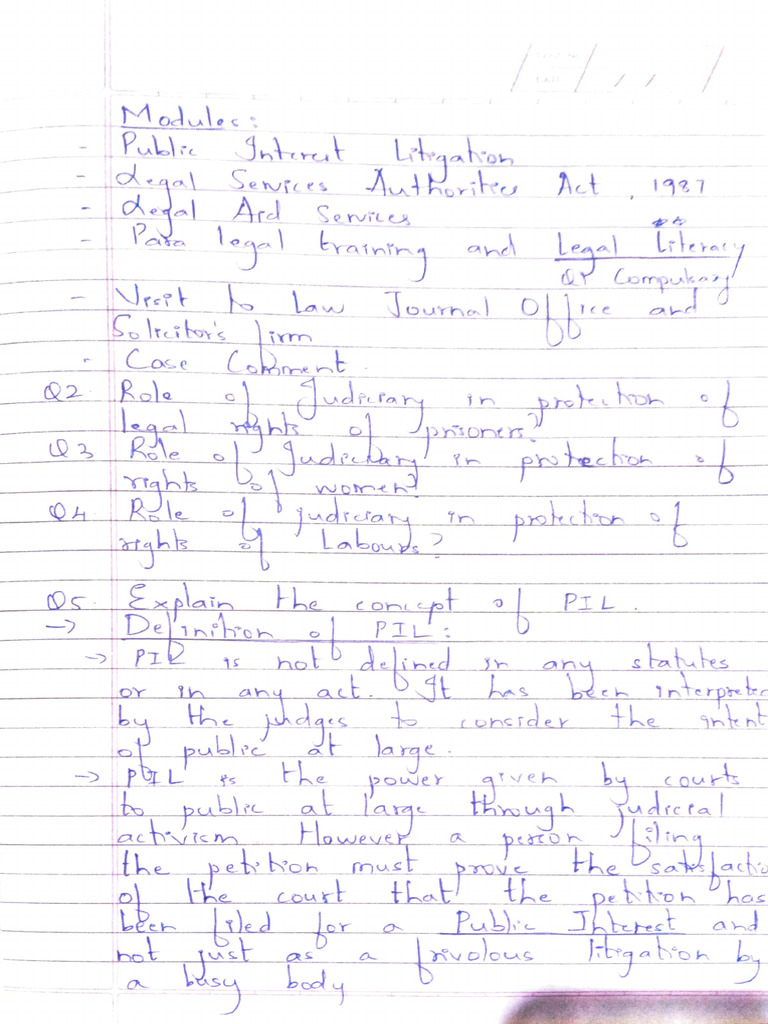 Modules:
- Public Interest Litigation
- Legal Services Authorities Act, 1987
- Legal Aid Services
- Para legal training and Legal Literacy
Q1 Compulsary
- Visit to Law Journal Office and
Solicitor's firm
- Case Comment.
Q2. Role of Judiciary in protection of
legal rights of prisoners?
Q3 Role of Judiciary in protection of
rights of women?
Q4 Role of judiciary in protection of
rights of Labours?
Q5. Explain the concept of PIL.
→ Definition of PIL:
→ PIL is not defined in any statutes
or in any act. It has been interpreted
by the judges to consider the intent
of public at large.
→ PIL is the power given by courts
to public at large through judicial
activism. However a person filing
the petition must prove the satisfactio
of the court that the petition has
been filed for a Public Interest and
not just as a frivolous litigation by
a busy body